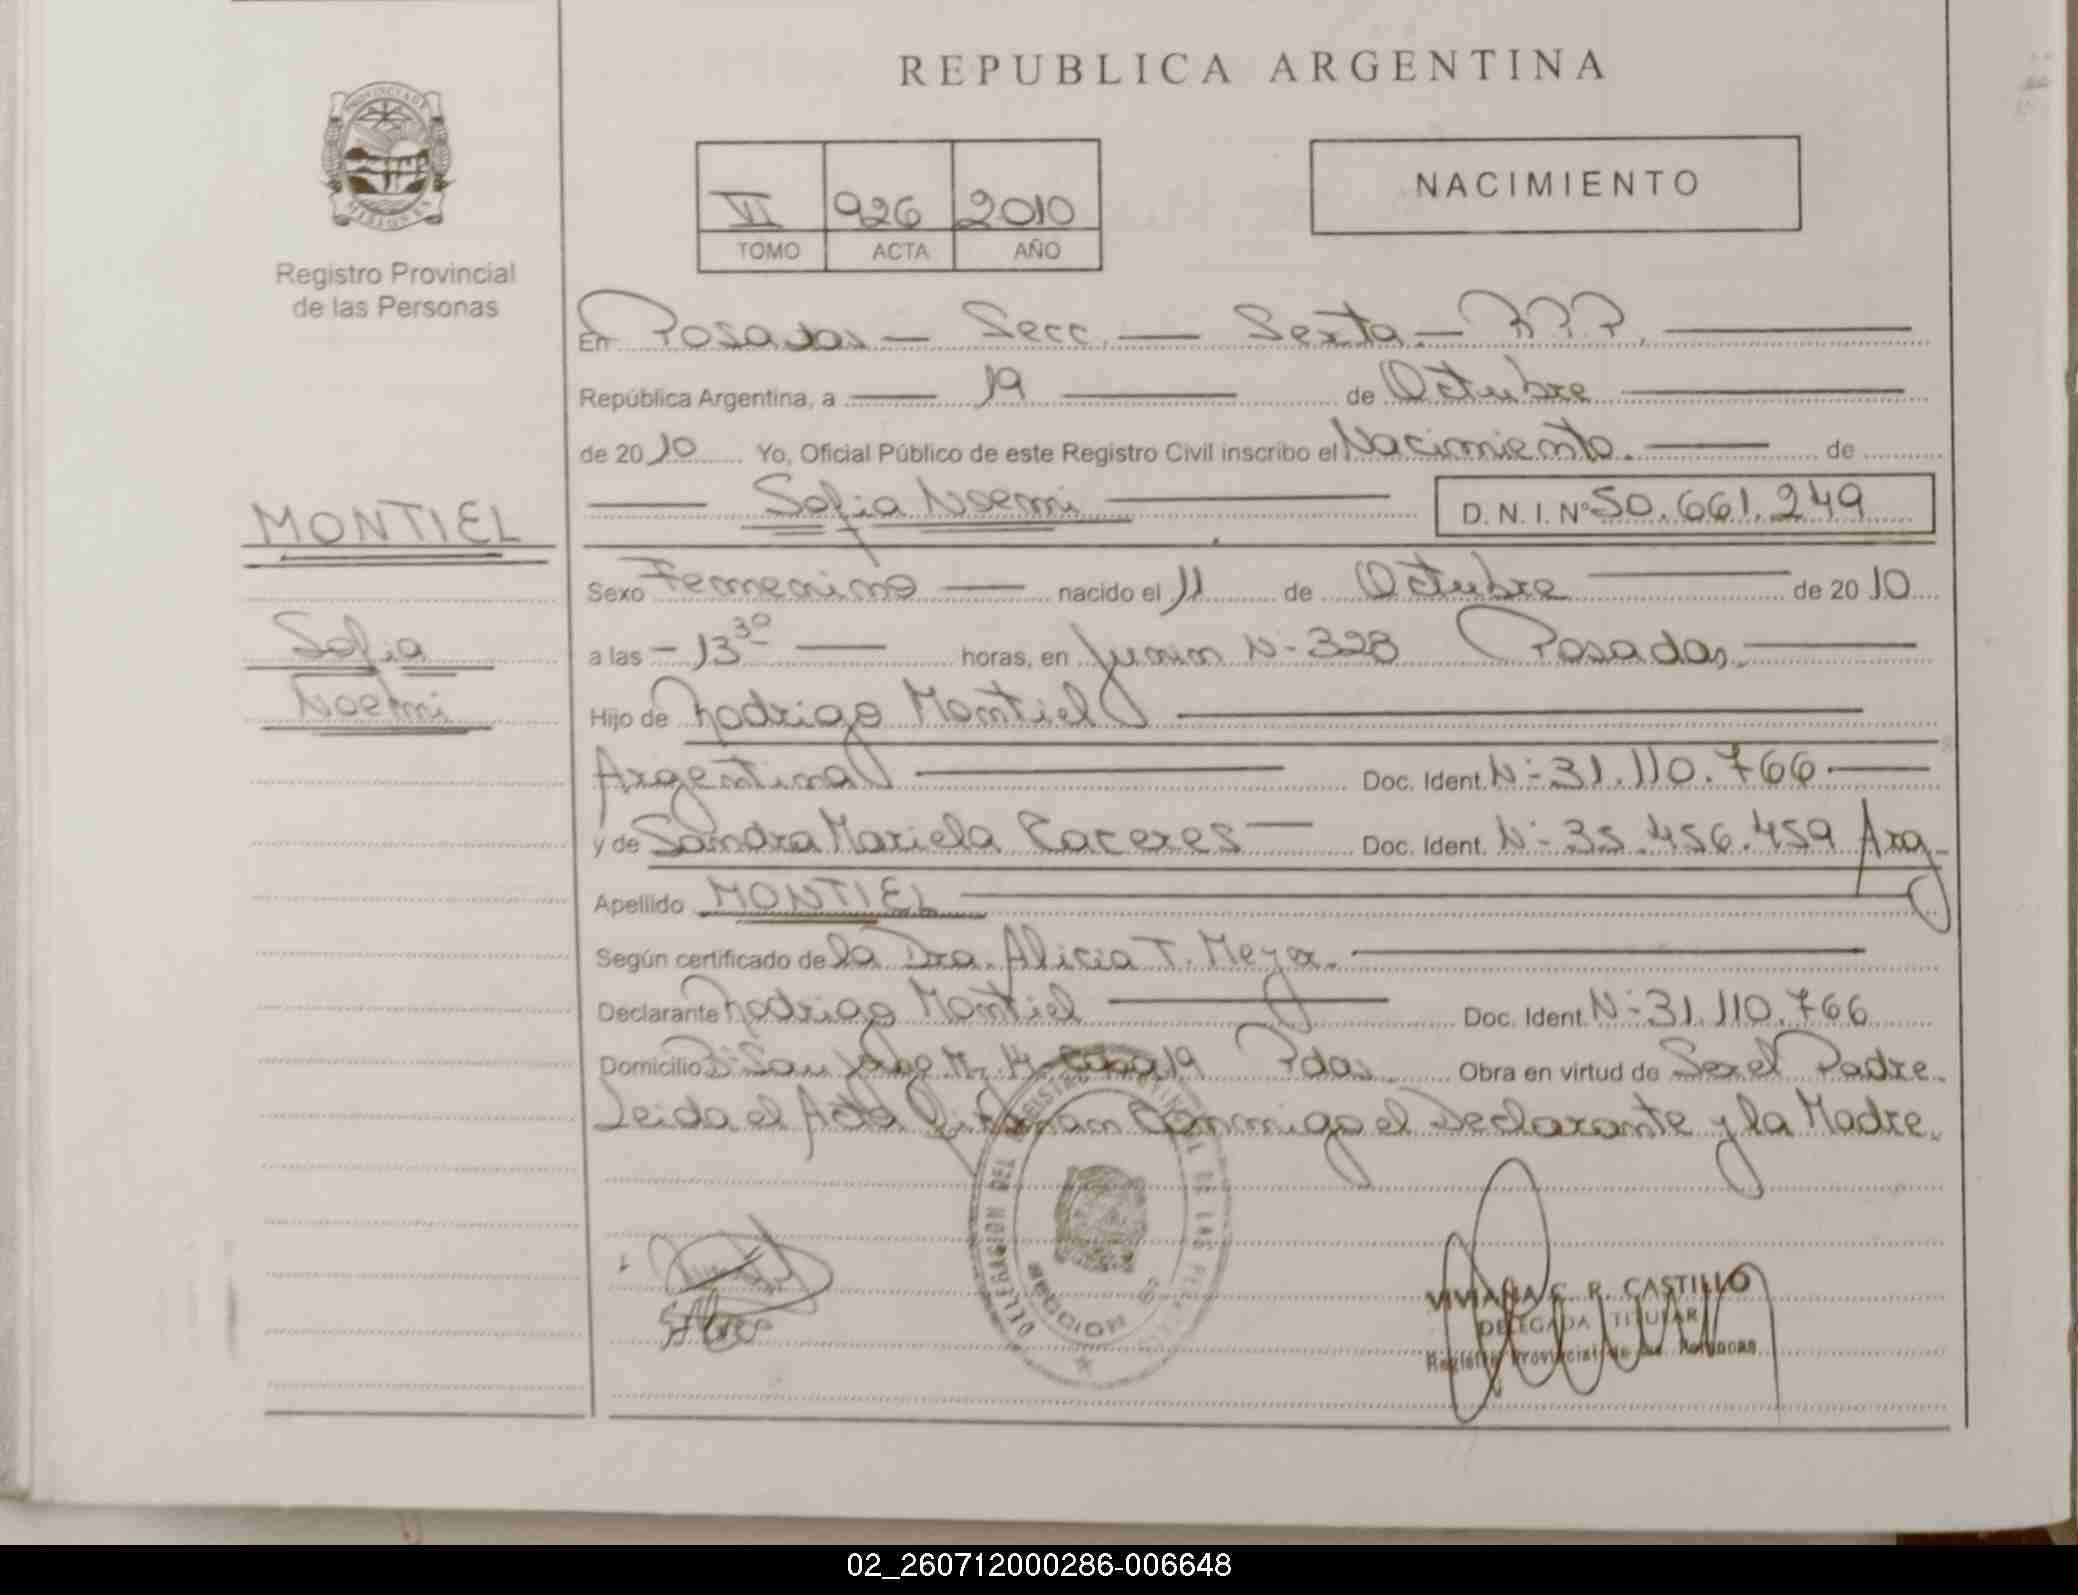 REPUBLICA ARGENTINA
PROVINCIA DE
MISIONES
Registro Provincial
de las Personas
VI 926 2010
TOMO ACTA AÑO
NACIMIENTO
En Posadas — Secc. — Sexta — R.P.P.
República Argentina, a — 19 — de Octubre
de 2010 Yo, Oficial Público de este Registro Civil inscribo el Nacimiento. — de
— Sofia Noemi — D. N. I. Nº 50.661.249
MONTIEL
Sofia
Noemi
Sexo Femenino — nacido el 11 de Octubre — de 2010
a las - 13 30 — horas, en Junin N- 328 Posadas. —
Hijo de Rodrigo Montiel —
Argentina — Doc. Ident. N- 31.110.766 —
y de Sandra Mariela Caceres — Doc. Ident. N- 35.456.459 Arg
Apellido MONTIEL —
Según certificado de la Dra. Alicia T. Meyer. —
Declarante Rodrigo Montiel — Doc. Ident. N- 31.110.766
Domicilio Bº San casa 19 Pdas. Obra en virtud de Ser el Padre.
Leida el Acta firman Conmigo el Declarante y la Madre.
DELEGACION DEL REGISTRO PROVINCIAL DE LAS
SECCION 6
VIVIANA C. R. CASTILLO
DELEGADA TITULAR
Registro Provincial de las Personas
02_260712000286-006648